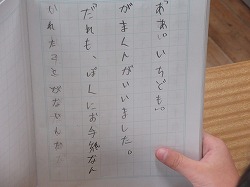 「ああ。いちども。」
がまくんがいいました。
だれも、ぼくにお手紙なん
かくれたことがないんだ。